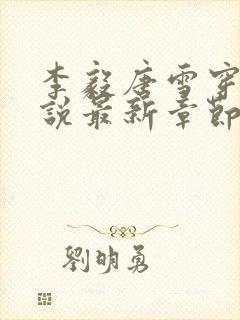 李毅唐雪穿
説最新章節
劉明勇